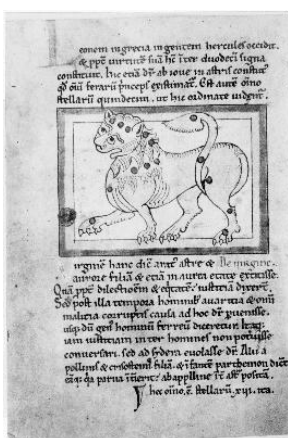 eonem ingrecia ingentem hercules occidit.
& ppt virtutē suā hc̄ iter duodecī signa
constituit. hic etiā dr̄ ab ioue in astris constitut'
qd̄ oīu ferarū p̄nceps existimat'. Est autē oīno
stellarū quindecim. ut hic ordinate uident'.
irginē hanc dic̄ arat' astre & 
aurore filiā. & etiā in aurea etate extitisse.
Quā ppt dilectionem & eqtatē. iusticiā dixert̄.
Sed post illa tempora hominū auaritia & oīum
malitia corruptis causa ad hoc dr̄ puenisse.
usq; dū gen' hominū ferreū diceretur. Itaq;
iam iusticiam inter homines non potuisse
conuersari. sed ad sydera euolasse dr̄. Alii a
pollinis & crisotemī filiam. & īfantē parthenon dict̄
eāq; qa parua īterit. ab apolline īt' ast' posita.
hec oīno. ē. stellarū. ita.